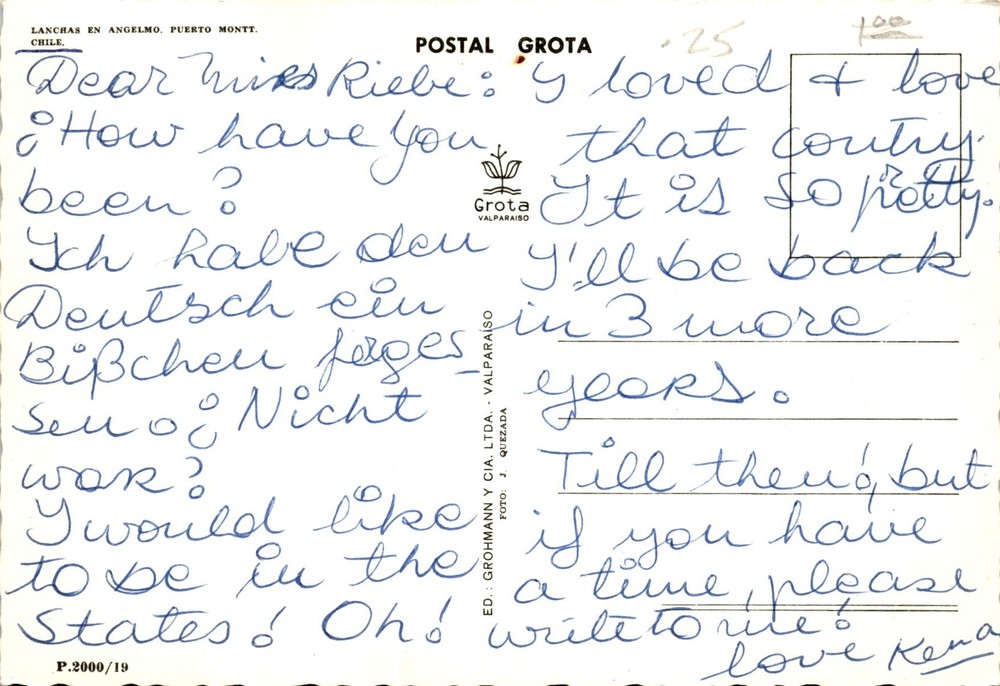 LANCHAS EN ANGELMO. PUERTO MONTT.
CHILE.
POSTAL GROTA
.25
1.00
Dear Miss Riebe:
¿How have you
been?
Ich habe den
Deutsch ein
Bißchen ferges_
sen o ¿Nicht
war?
I would like
to be in the
States! Oh!
I loved + love
that contry.
It is so pretty.
I'll be back
in 3 more
years.
Till then!, but
if you have
a time, please
write to me!
love Kena
Grota
VALPARAISO
ED.: GROHMANN Y CIA. LTDA. - VALPARAÍSO
FOTO: J. QUEZADA
P.2000/19